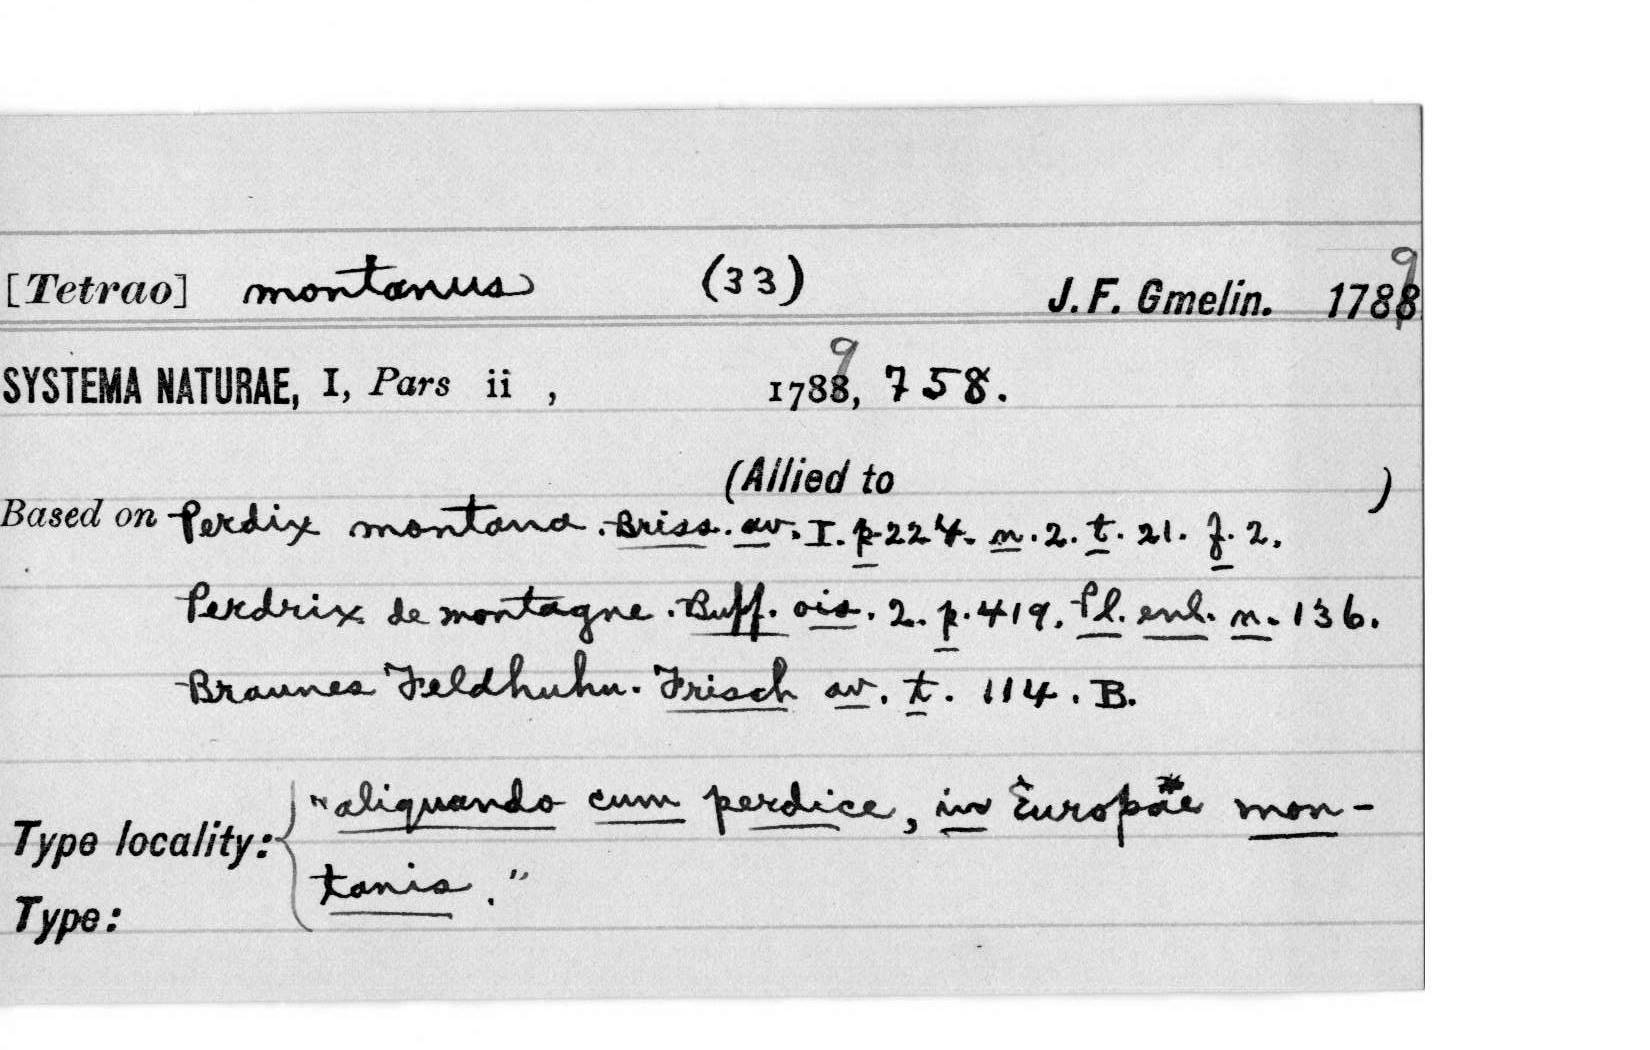 [Tetrao] montanus (33) J. F. Gmelin. 1789
SYSTEMA NATURAE, I, Pars ii , 1789, 758.
(Allied to )
Based on Perdix montana. Briss. av. I. p. 224. n. 2. t. 21. f. 2.
Perdrix de montagne. Buff. ois. 2. p. 419. Pl. enl. n. 136.
Braunes Feldhuhn. Frisch av. t. 114. B.
"aliquando cum perdice, in Europae mon-
Type locality:
tanis."
Type: